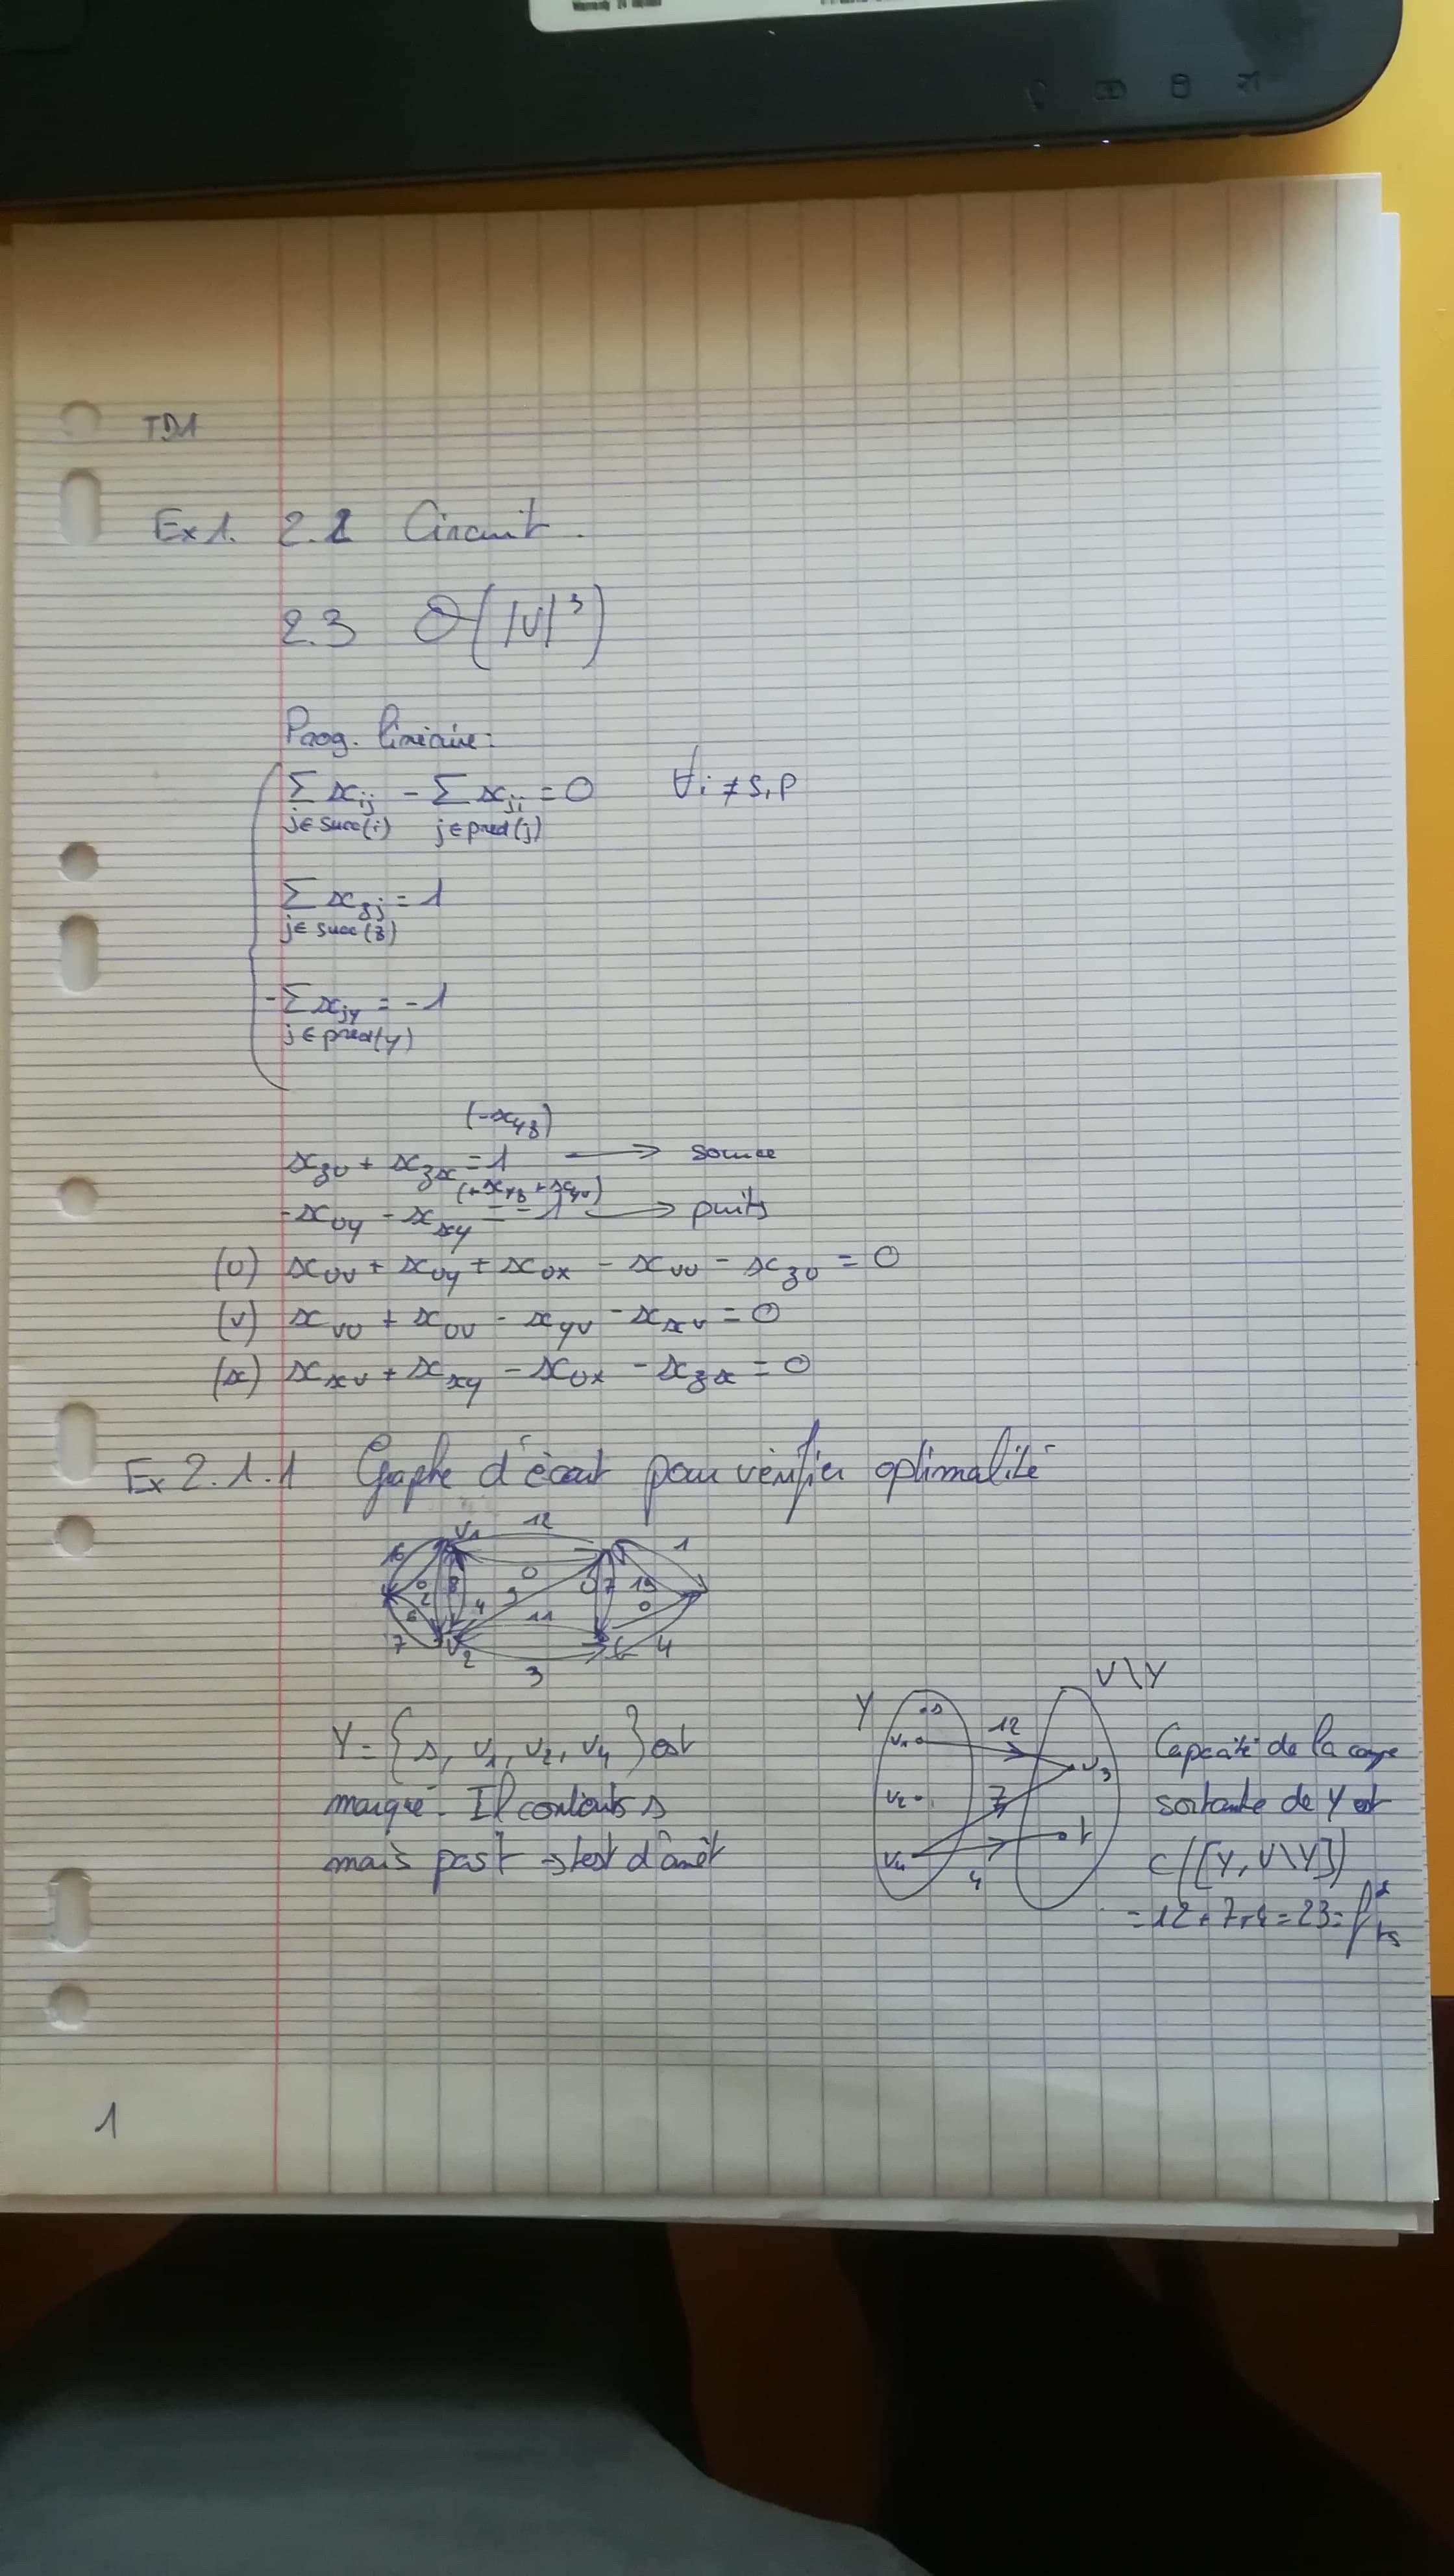 TD1
Ex1. 2.2 Circuit.
2.3 O(|V|³)
Prog. linéaire:
∑ x_ij - ∑ x_ji = 0 ∀i ≠ s, p
j∈succ(i) j∈pred(j)
∑ x_zj = 1
j∈succ(z)
-∑ x_jy = -1
j∈pred(y)
(-x_yz)
x_zu + x_zx = 1 → source
(+x_yz + x_yv)
-x_uy - x_xy = -1 → puits
(u) x_uv + x_uy + x_ux - x_vu - x_zu = 0
(v) x_vu + x_uv - x_yv - x_xv = 0
(x) x_xv + x_xy - x_ux - x_zx = 0
Ex 2.1.1 Graphe d'écart pour vérifier optimalité
V1 12 1
16 0 2 8 4 9 0 7 19
6 11 0
7 V2 3 4
Y = {s, v1, v2, v4} est
marqué. Il contients s
mais pas t → test d'arêt
Y V\Y
s
v1 12 v3
v2 7
v4 4 t
Capcaité de la coupe
sortante de Y est
C([Y, V\Y])
= 12+7+4 = 23 = f*ts
1